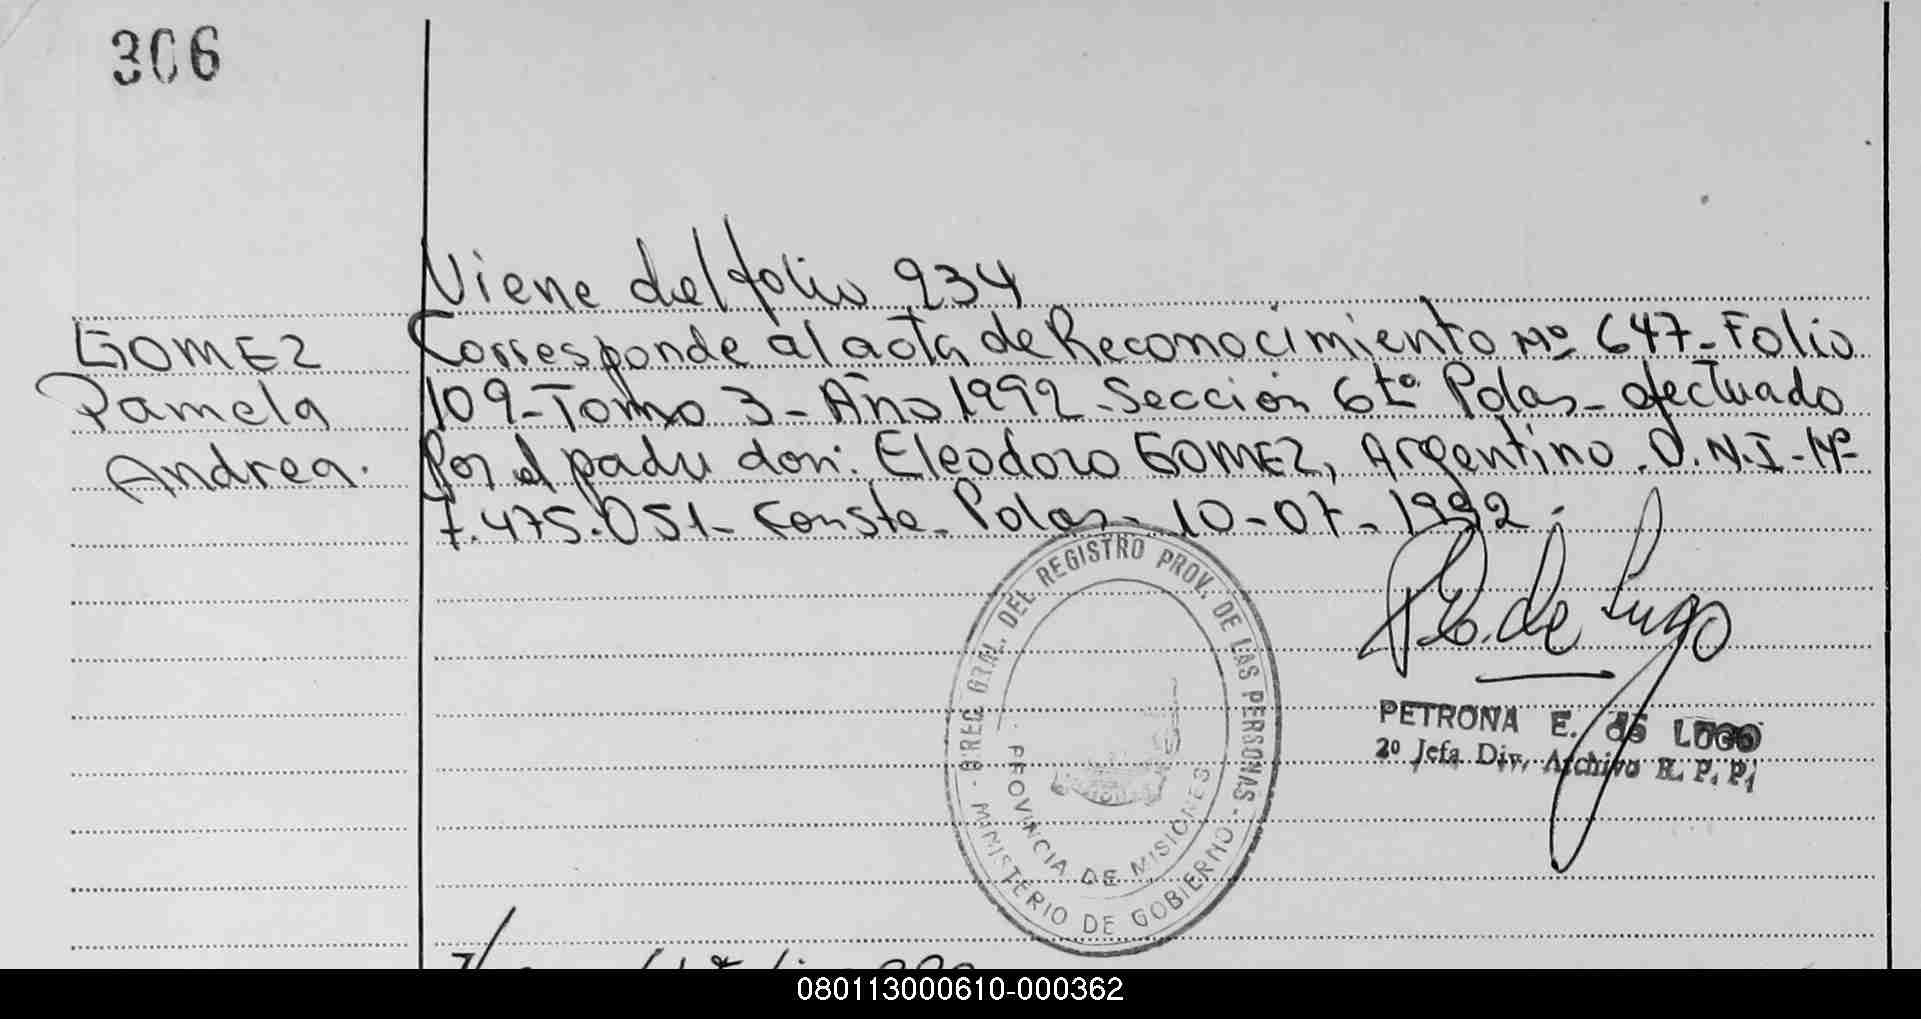 306
Viene del folio 934
GOMEZ
Pamela
Andrea.
Corresponde al acta de Reconocimiento Nº 647-Folio
109-Tomo 3-Año 1992-Sección 6tª Pdas- efectuado
Por el padre don: Eleodoro GOMEZ, Argentino. D.N.I-Nº
7.475.051- Conste- Pdas- 10-07-1992.
P.E. de Lugo
PETRONA E. de LUGO
2º Jefa Div. Archivo R. P. P.
DIREC. GRAL. DEL REGISTRO PROV. DE LAS PERSONAS -
MINISTERIO DE GOBIERNO -
PROVINCIA DE MISIONES
080113000610-000362